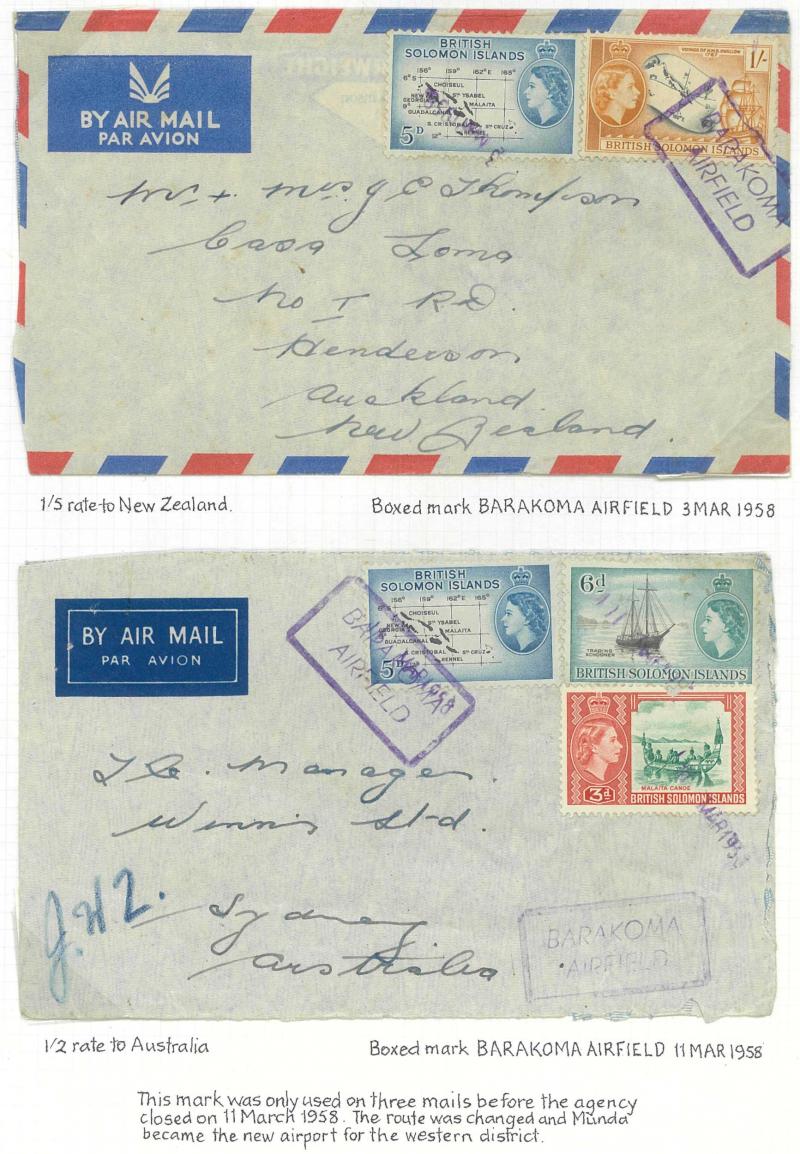 BY AIR MAIL
PAR AVION
BRITISH
SOLOMON ISLANDS
156° 159° 162°E 165°
6°S
CHOISEUL
STA YSABEL
NEW
GEORGIA
MALAITA
9°
GUADALCANAL
S. CRISTOBAL STA CRUZ
12°
RENNEL
5D
VOYAGE OF H.M.S. SWALLOW
1767
1/-
BRITISH SOLOMON ISLANDS
BARAKOMA
AIRFIELD
Mr + Mrs J C Thompson
Casa Loma
No I RD.
Henderson
Auckland
New Zealand.
1/5 rate to New Zealand.
Boxed mark BARAKOMA AIRFIELD 3 MAR 1958
BY AIR MAIL
PAR AVION
BRITISH
SOLOMON ISLANDS
156° 159° 162°E 165°
6°S
CHOISEUL
STA YSABEL
GEORGIA
MALAITA
GUADALCANAL
S. CRISTOBAL STA CRUZ
RENNEL
5D
BARAKOMA
AIRFIELD
MAR 1958
6d
TRADING
SCHOONER
BRITISH SOLOMON ISLANDS
3d
MALAITA CANOE
BRITISH SOLOMON ISLANDS
MAR 1958
The Manager
Ltd.
J.H2.
Sydney
Australia
BARAKOMA
AIRFIELD
1/2 rate to Australia
Boxed mark BARAKOMA AIRFIELD 11 MAR 1958
This mark was only used on three mails before the agency
closed on 11 March 1958. The route was changed and Munda
became the new airport for the western district.